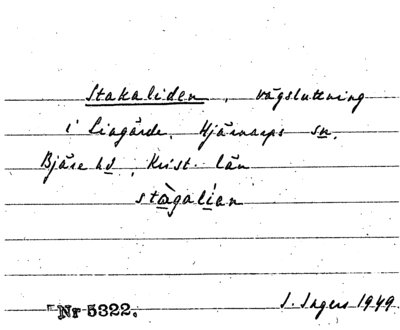 Stakaliden, vägsluttning
i Lingårde, Hjärnarps sn,
Bjäre hd, Krist. län
stàgalían
Nr 5322.
I. Ingers 1949